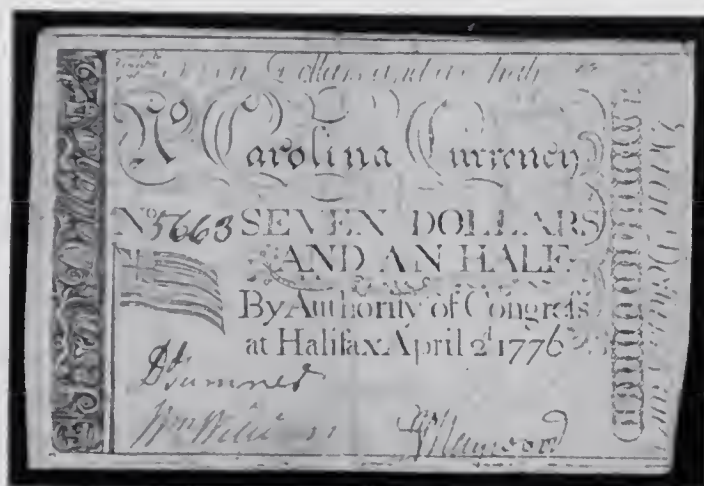 Dollars and an half
No Carolina Currency
No 5663 SEVEN DOLLARS
AND AN HALF
By Authority of Congreſs
at Halifax April 2d 1776
J Sumner
Wm Williams